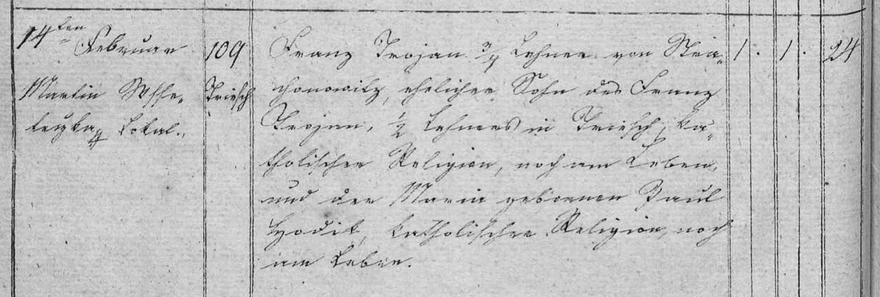 14ten Februar
Martin Wsse-
teczka Lokal.
109
Triesch
Franz Trojan 3/4 Lehner von Stra-
chonowitz, ehelicher Sohn des Franz
Trojan, 1/2 Lehners in Triesch, ka-
tholischer Religion, noch am Leben,
und der Maria gebornen Paul
Hodik, katholischer Religion, noch
am Leben.
1. 1. 24